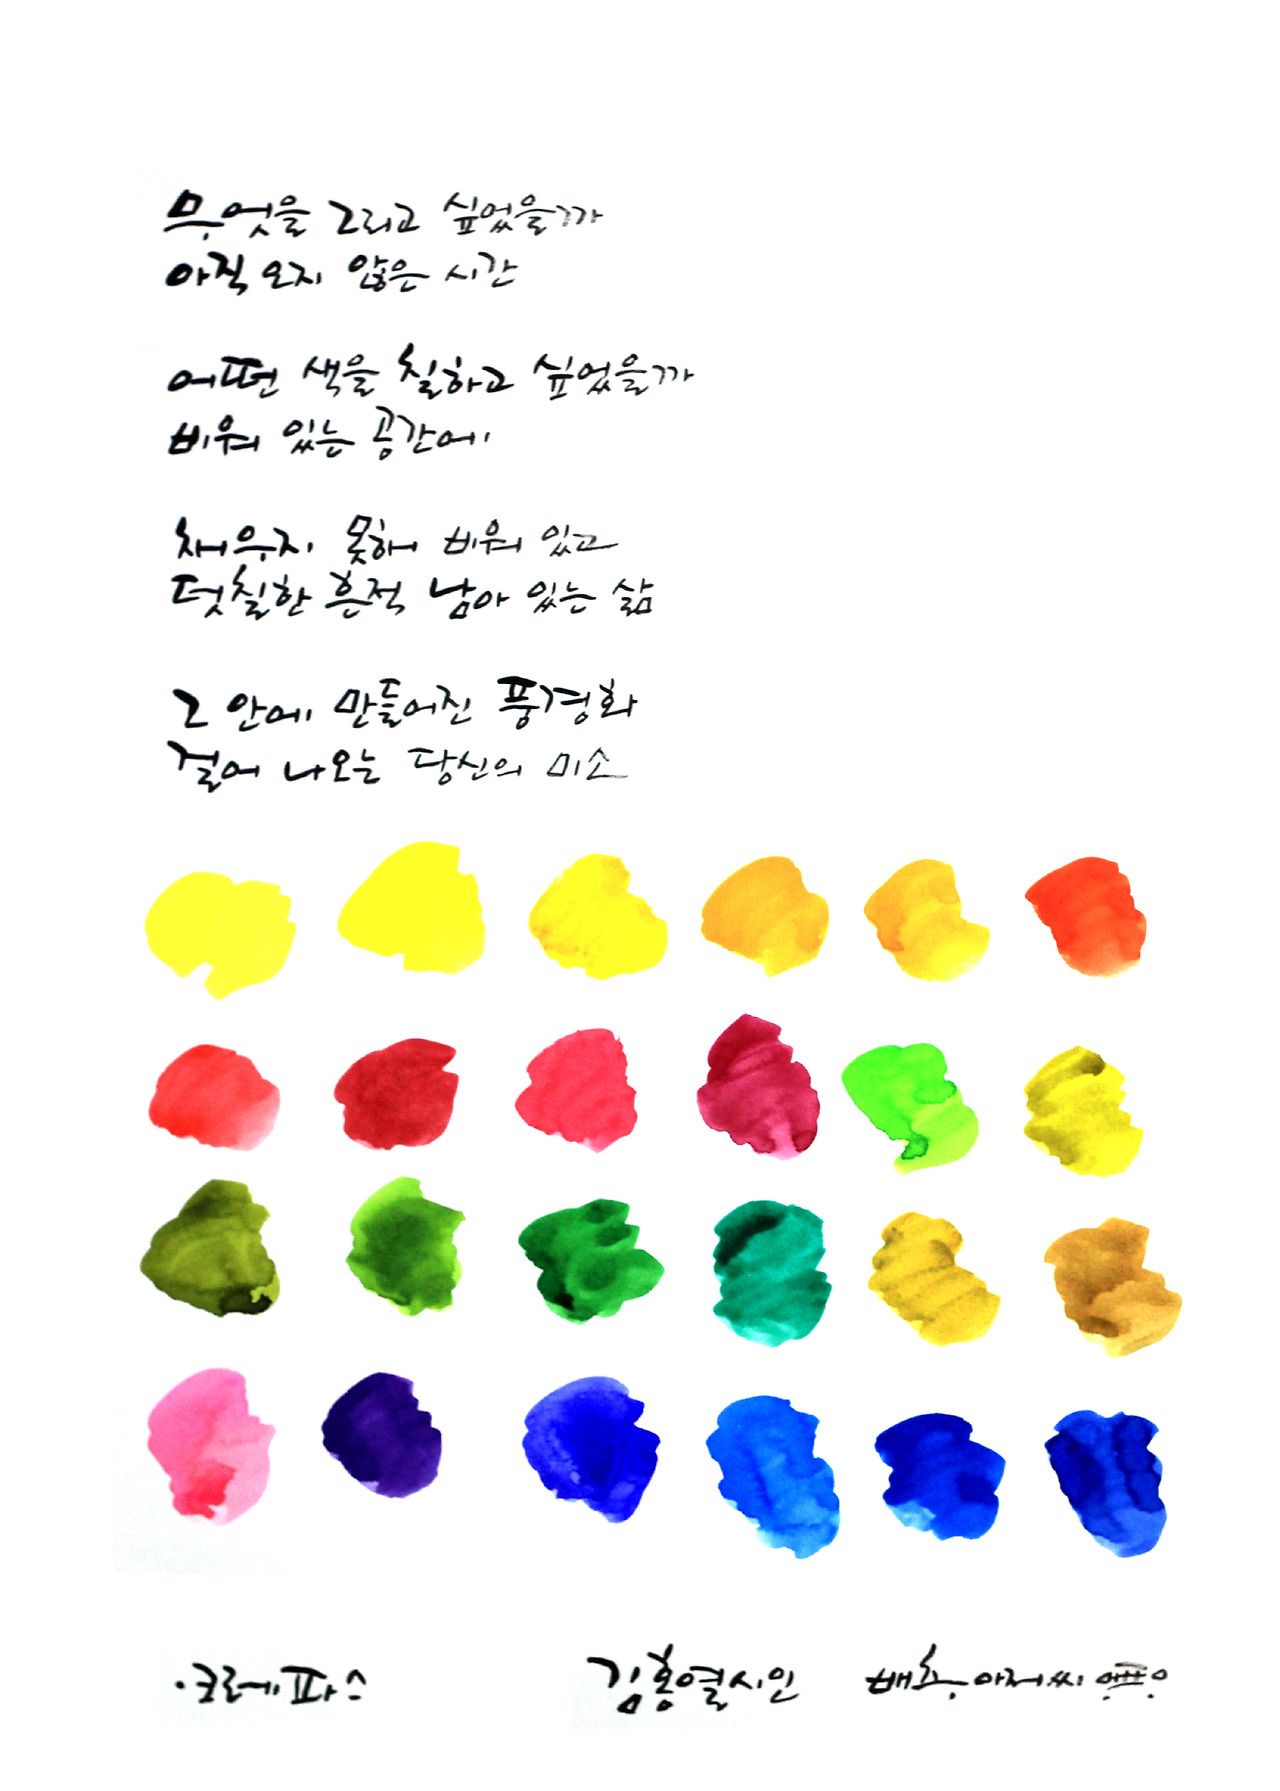 무엇을 그리고 싶었을까
아직 오지 않은 시간
어떤 색을 칠하고 싶었을까
비워 있는 공간에
채우지 못해 비워 있고
덧칠한 흔적 남아 있는 삶
그 안에 만들어진 풍경화
걸어 나오는 당신의 미소
·크레파스
김홍열시인
배추아저씨